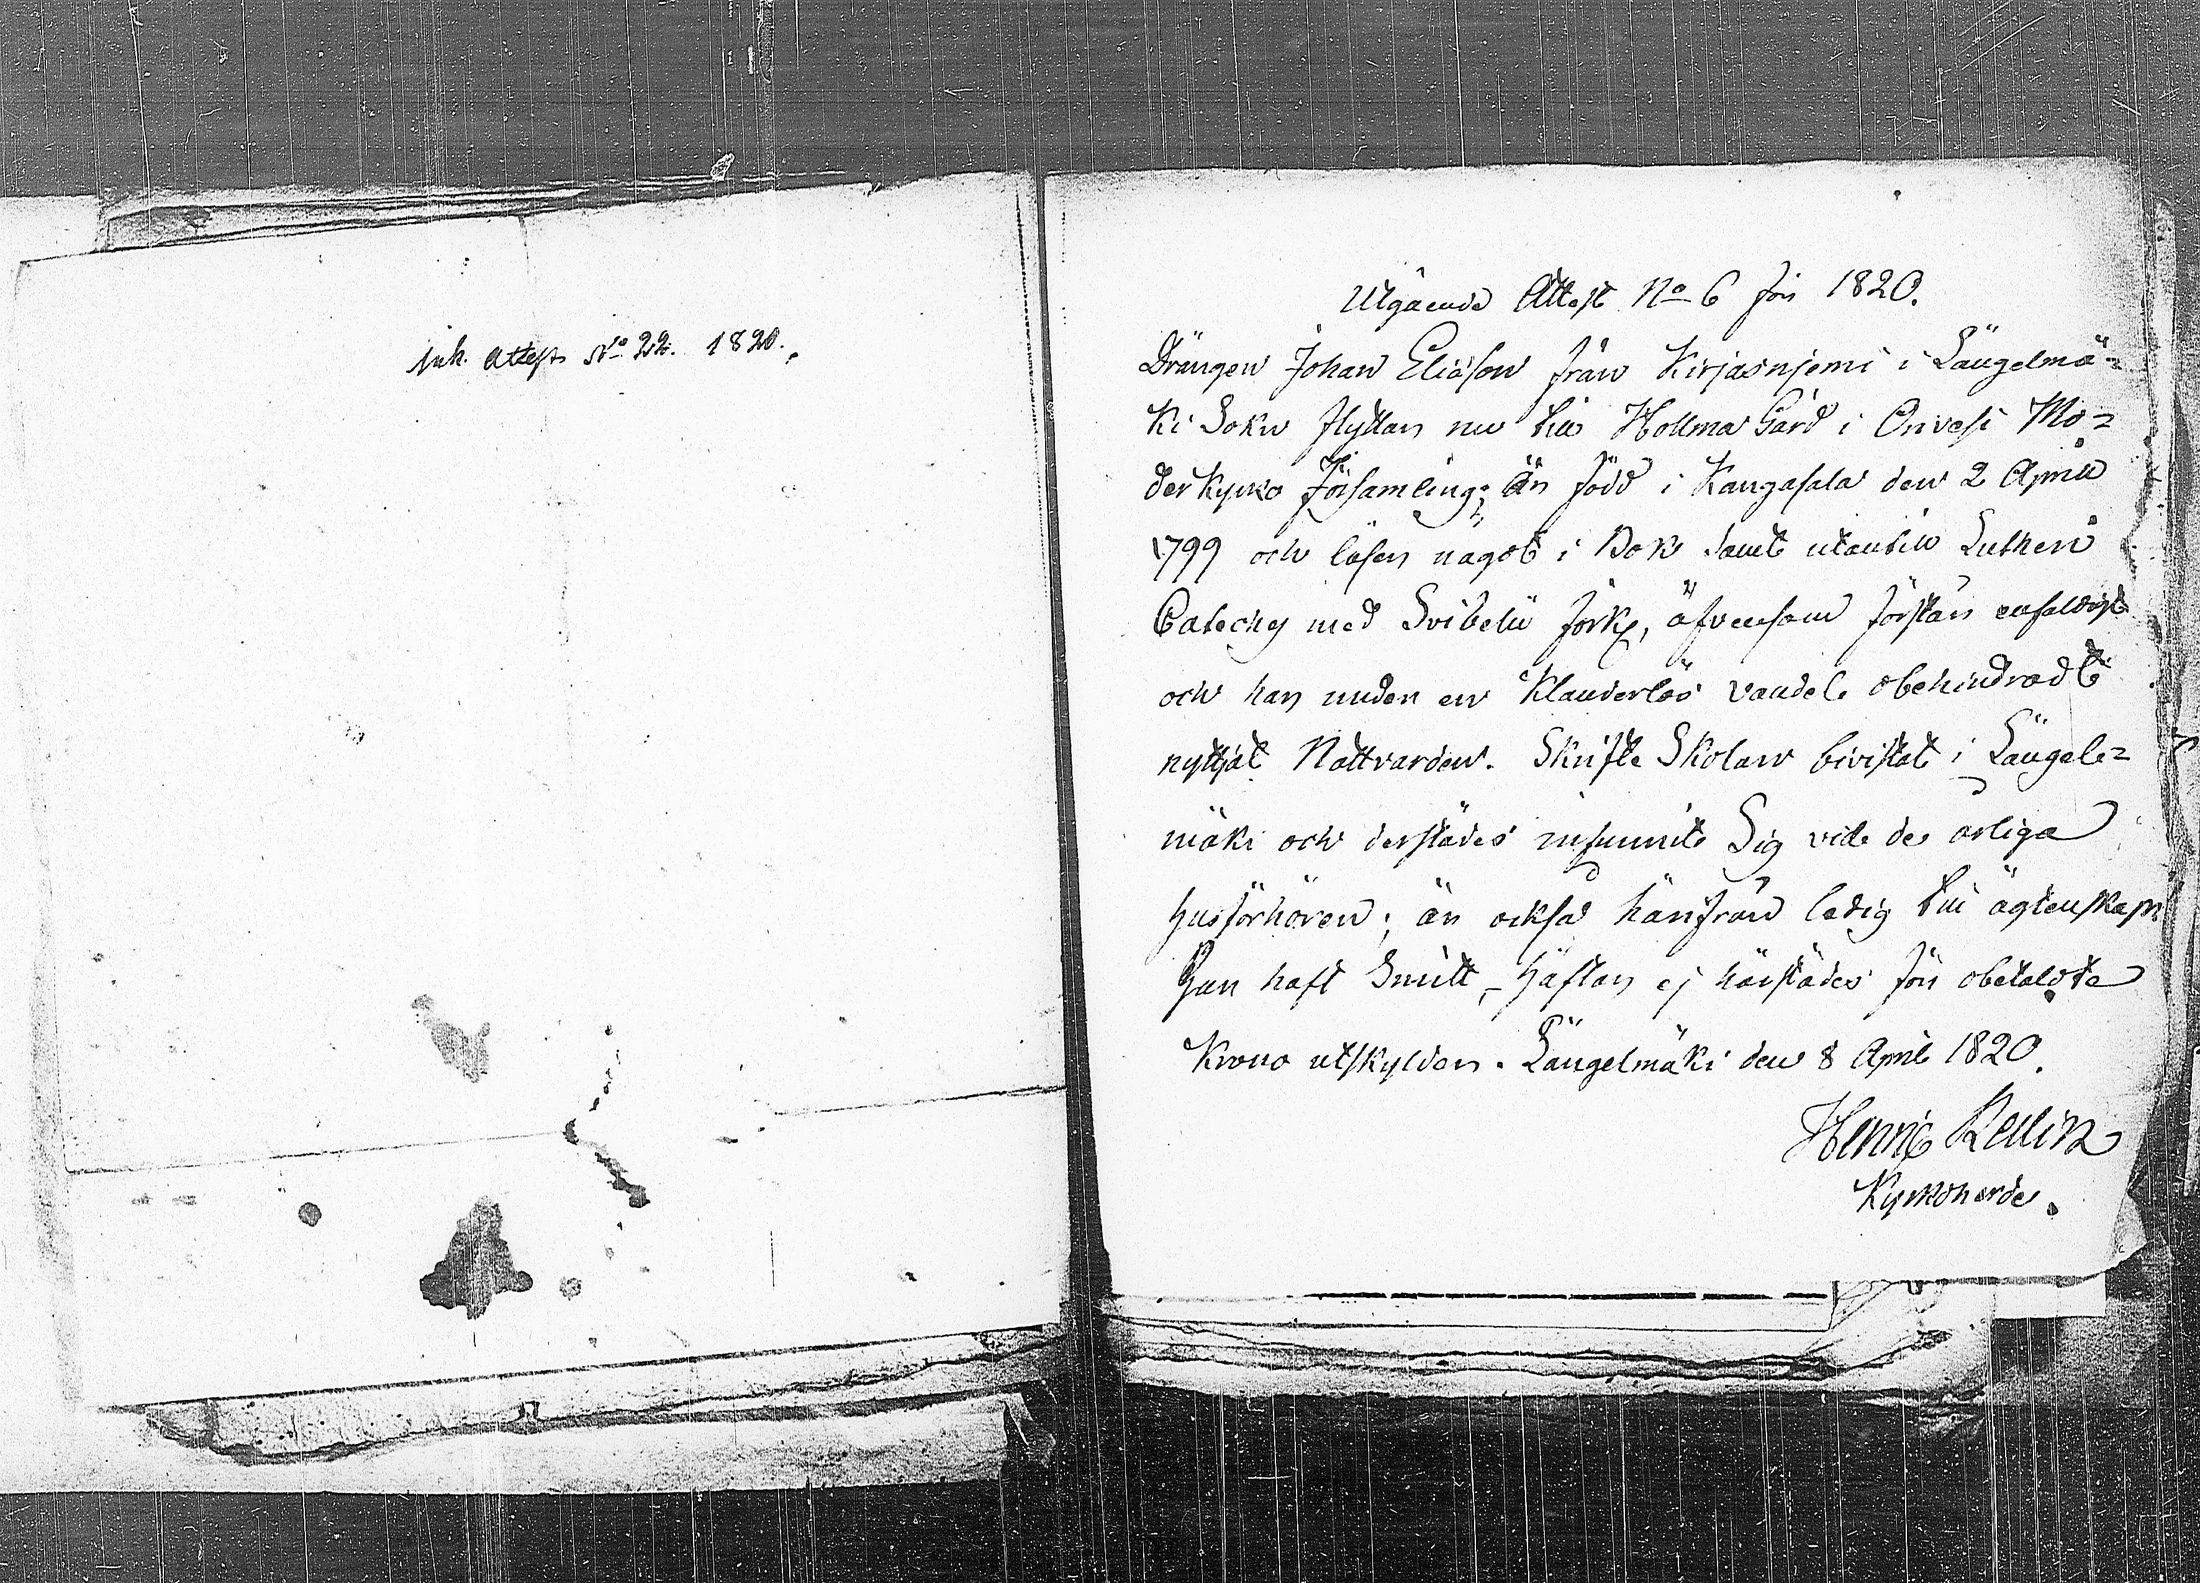 Ink. Attest No 22. 1820.
Utgående Attest No 6 för 1820.
Drängen Johan Eliason från Kirjasnjemi i Längelmä=
ki Sokn flyttar nu till Hollma Gård i Orivesi Mo=
derkyrko Församling; är född i Kangasala den 2 April
1799 och läser något i Bok samt utantill Lutheri
Cateches med Svibelii förkl, äfvensom förstår enfaldigt
och har under en Klanderlös vandel obehindradt
nyttjat Nattvarden. Skrifte Skolan bivistat i Längel=
mäki och derstädes infunnit Sig vid de årliga
husförhören; är också härifrån ledig till ägtenskap.
Han haft Smitt, häftar ej härstädes för obetalde
Krono utskylder. Längelmäki den 8 April 1820.
Henric Rellin
Kyrkoherde.